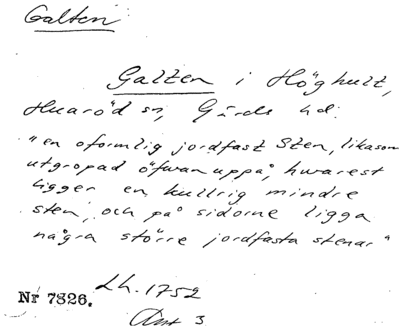 Galten:
Galten i Höghult,
Huaröd sn, Gärds hd:
"en oformlig jordfast Sten, likasom
utgropad öfwanuppå, hwarest
ligger en kullrig mindre
sten, och på sidorne ligga
några större jordfasta stenar"
Lh. 1752
Nr 7826.
Ant 3